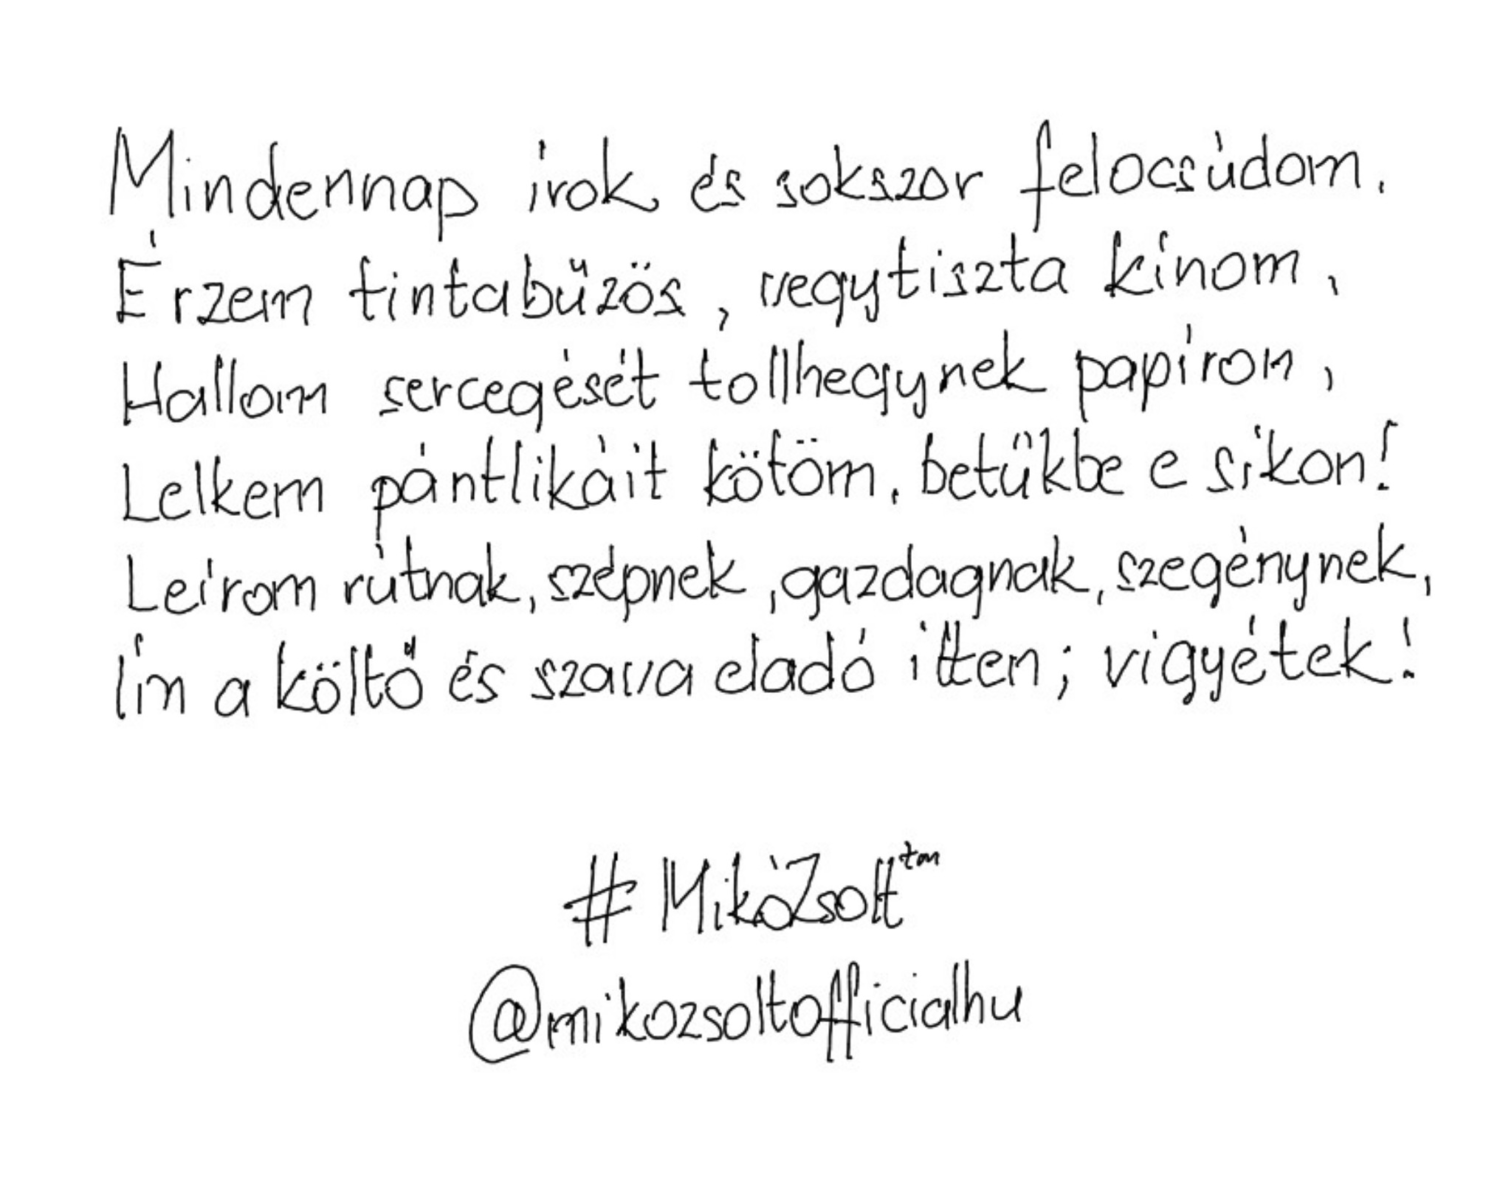 Mindennap írok és sokszor felocsúdom.
Érzem tintabűzös, vegytiszta kínom,
Hallom sercegését tollhegynek papíron,
Lelkem pántlikáit kötöm, betűkbe e síkon!
Leírom rútnak, szépnek, gazdagnak, szegénynek,
Ím a költő és szava eladó itten; vigyétek!
#MikóZsolt™
@mikozsoltofficialhu